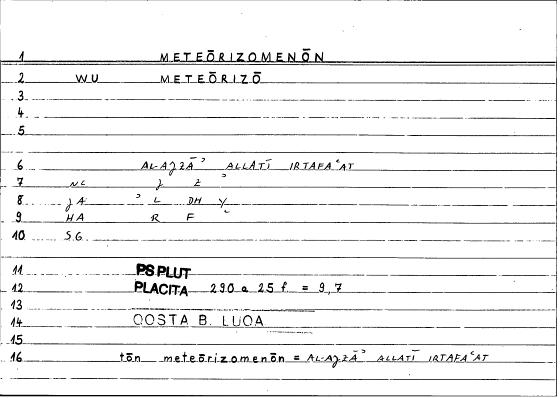 1 METEŌRIZOMENŌN
2 WU METEŌRIZŌ
3
4
5
6 AL-AǧZĀʾ ALLATĪ IRTAFAʿAT
7 NC ǧ Z ʾ
8 ǧA ʾ L DH Y
9 HA R F ʿ
10 SG
11 PS PLUT
12 PLACITA 290 a 25 f = 9,7
13
14 QOSTA B. LUQA
15
16 tōn meteōrizomenōn = AL-AǧZĀʾ ALLATĪ IRTAFAʿAT